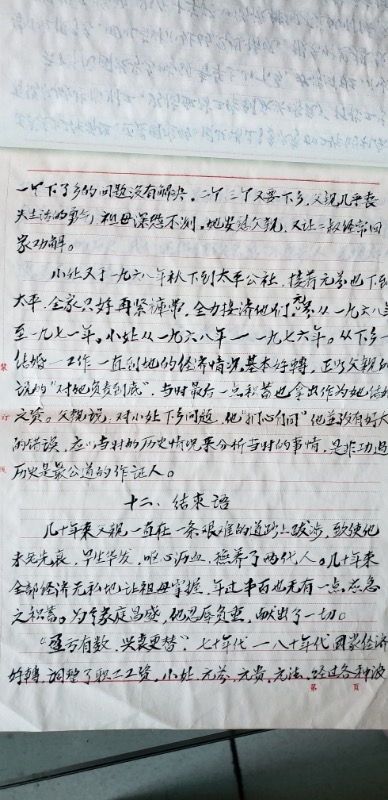 一个下了乡的问题没有解决，二个三个又要下乡，父親几乎丧
失生活的勇气，祖母深恐不测，她安慰父親，又让二叔经常回
家劝解。
小处又于一九六八年秋下到太平公社，接着元芬也下到
太平，全家只好再紧裤带，全力接济他们，从一九六八年
至一九七一年。小处从一九六八年一一九七六年。从下乡一
结婚一工作一直到她的经济情况基本好轉，正以父親的
说的"对她负责到底"，当时最后一点积蓄也拿出作为她结婚
之资。父親说：对小处下乡问题，他"扪心自问"他並没有好大
的错误，应以当时的历史情况来分析当时的事情，是非功过
历史是最公道的作证人。
十二、结束语
几十年来父親一直在一条艰难的道路上跋涉，致使他
未老先衰，早生华发，呕心沥血，撫养了两代人。几十年来
全部经济无私地让祖母掌握，年过半百也无有一点应急
之积蓄。为了家庭昌盛，他忍辱负重，献出了一切。
"运亏有数，兴衰更替"，七十年代一八十年代国家经济
好轉，調整了职工工资，小处、元芬、元贵、元法、经过各种波
第 页
装
订
线